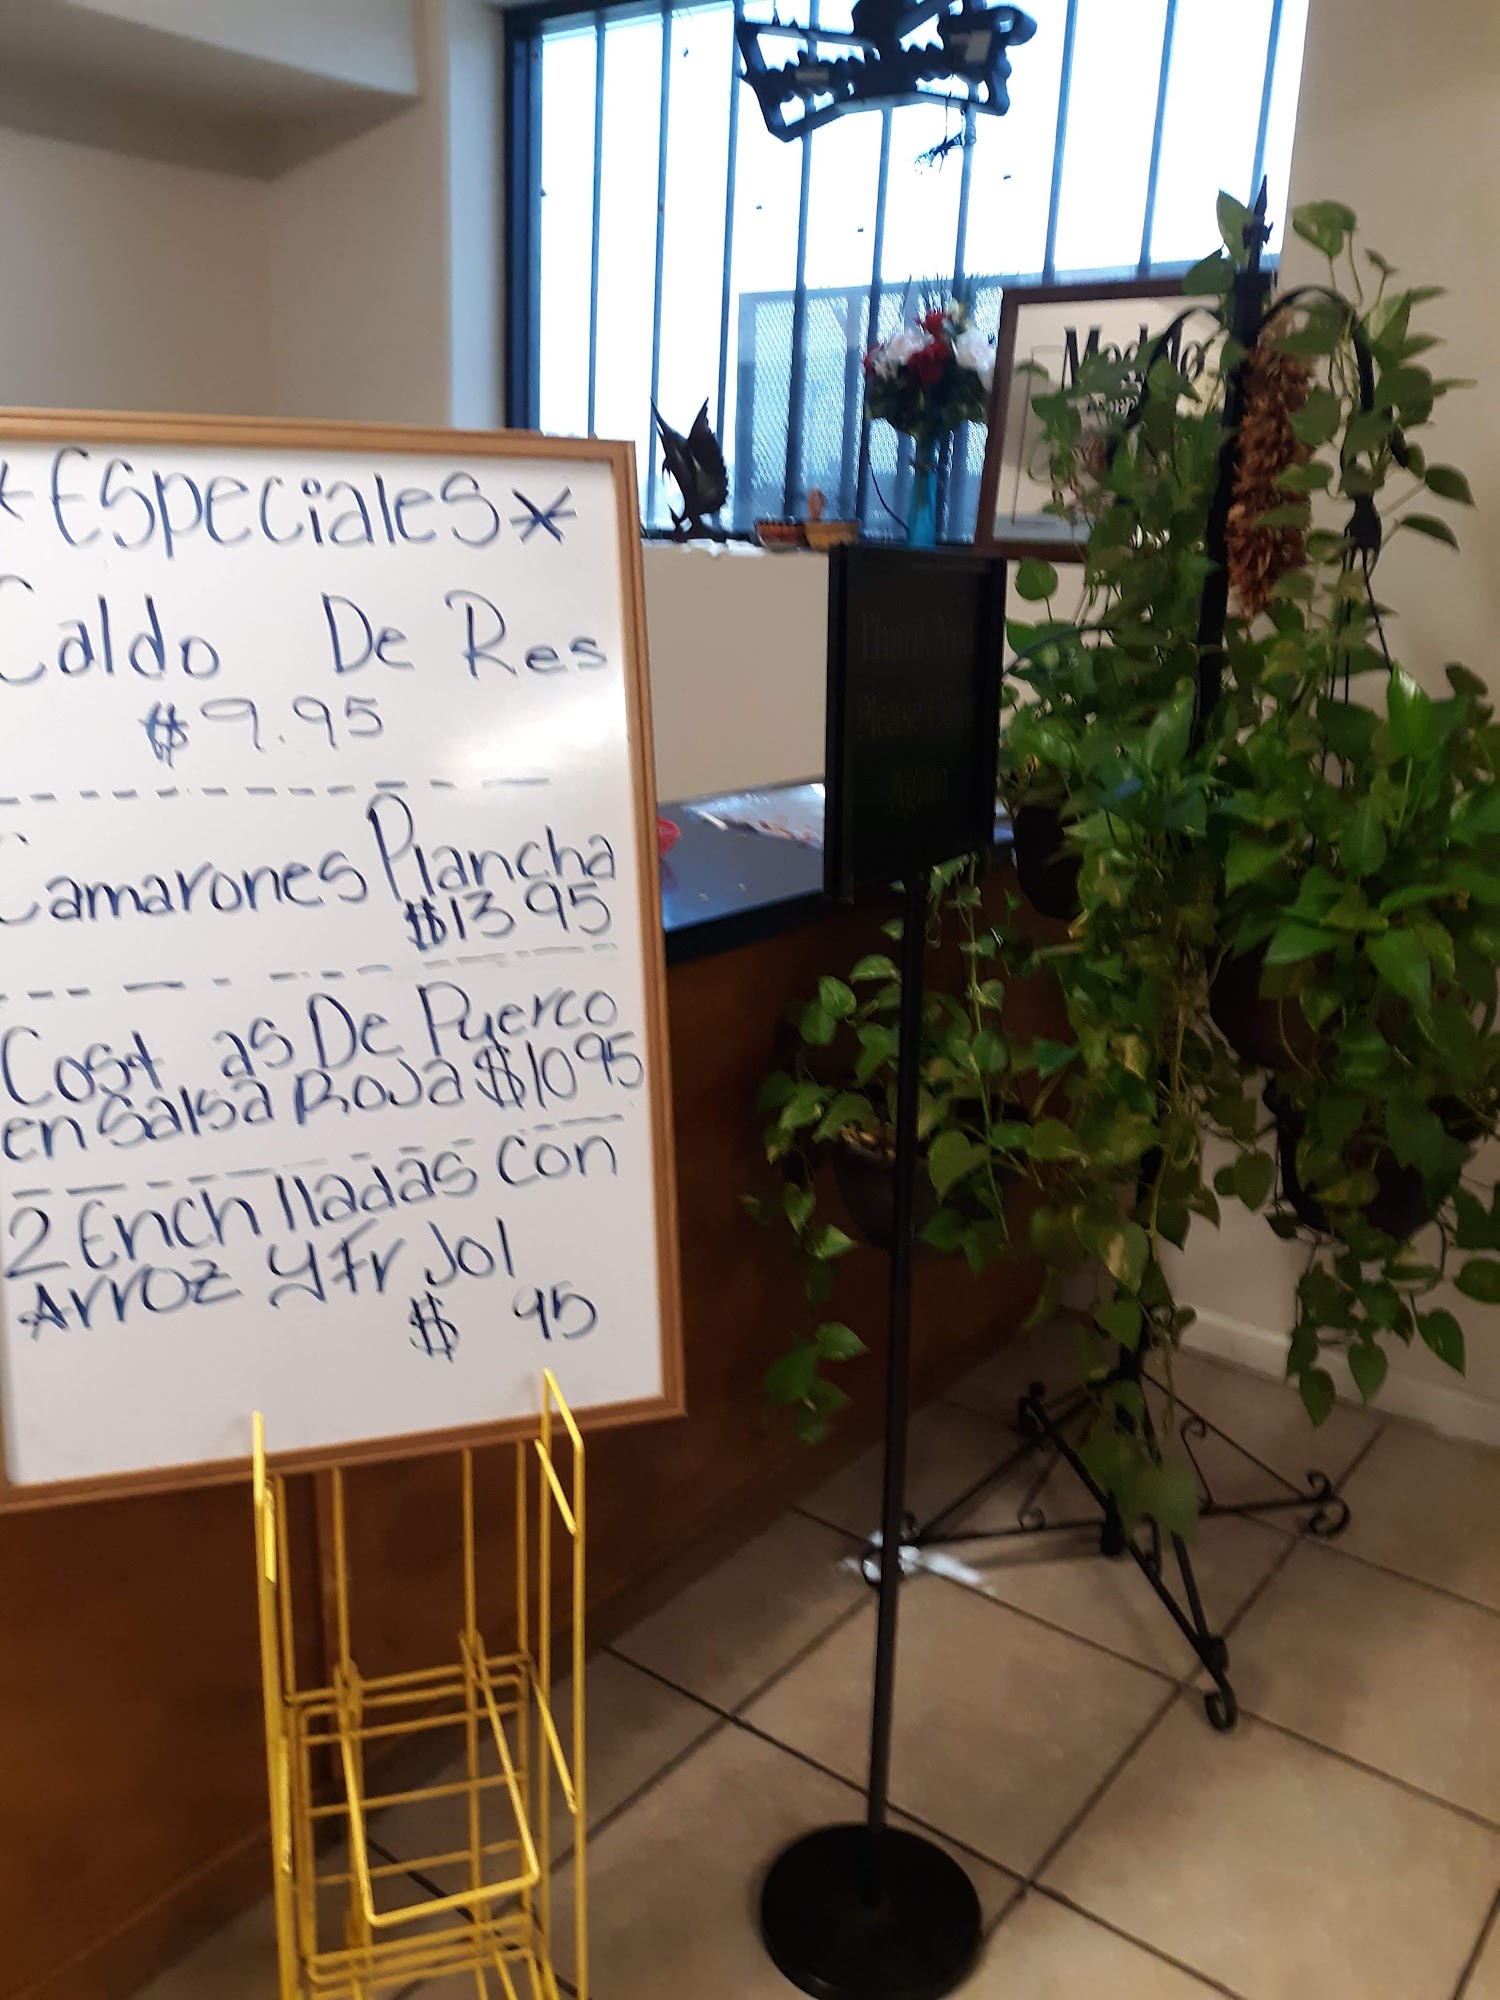 *Especiales*
Caldo De Res
$9.95
Camarones Plancha
$13 95
Cost as De Puerco
en Salsa Roja $10 95
2 Ench lladas con
Arroz y Fr Jol
$ 95
Modelo
Thank You
Please Come
Again